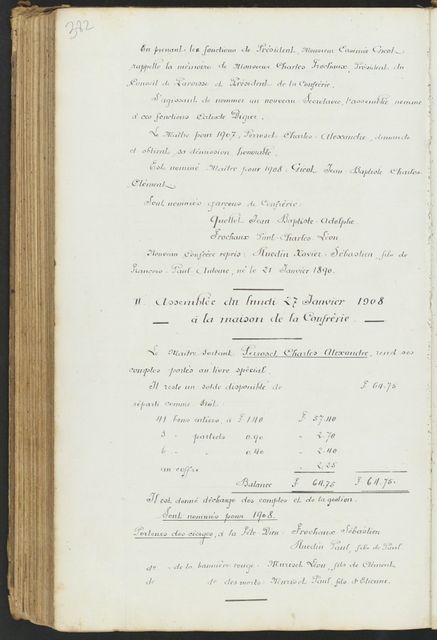 382
En prenant les fonctions de Président, Monsieur Casimir Gicot
rappelle la mémoire de Monsieur Charles Frochaux, Président du
Conseil de Paroisse et Président de la Confrérie.
S'agissant de nommer un nouveau Secrétaire, l'assemblée nomme
à ces fonctions Digier.
Le Maître pour 1907, Perroset Charles-Alexandre, demande
et obtient sa démission honorable.
Est nommé Maître pour 1908: Gicot Jean Baptiste Charles
Clément
Sont nommés garçons de Confrérie:
Quellet Jean Baptiste-Adolphe
Frochaux Paul-Charles-Léon
Nouveau Confrère repris: Muedin Xavier-Sébastien, fils de
François-Paul-Antoine, né le 21 Janvier 1890.
II Assemblée du lundi 27 Janvier 1908
à la maison de la Confrérie.
Le Maître sortant Perroset Charles Alexandre, rend ses
comptes portés au livre spécial.
Il reste un solde disponible de F 64.75
réparti comme suit:
41 bons entiers, à F 1.40 F 57.40
3 - partiels 0.90 - 2.70
6 - 0.40 - 2.40
en coffre - 2.25
Balance F 64.75 F 64.75.
Il est donné décharge des comptes et de la gestion.
Sont nommés pour 1908.
Porteurs des cierges, à la Fête Dieu: Frochaux Sébastien
Muedin Paul, fils de Paul
d° de la bannière rouge: Muriset Léon, fils de Clément,
de d° des morts: Muriset Paul, fils d'Etienne.